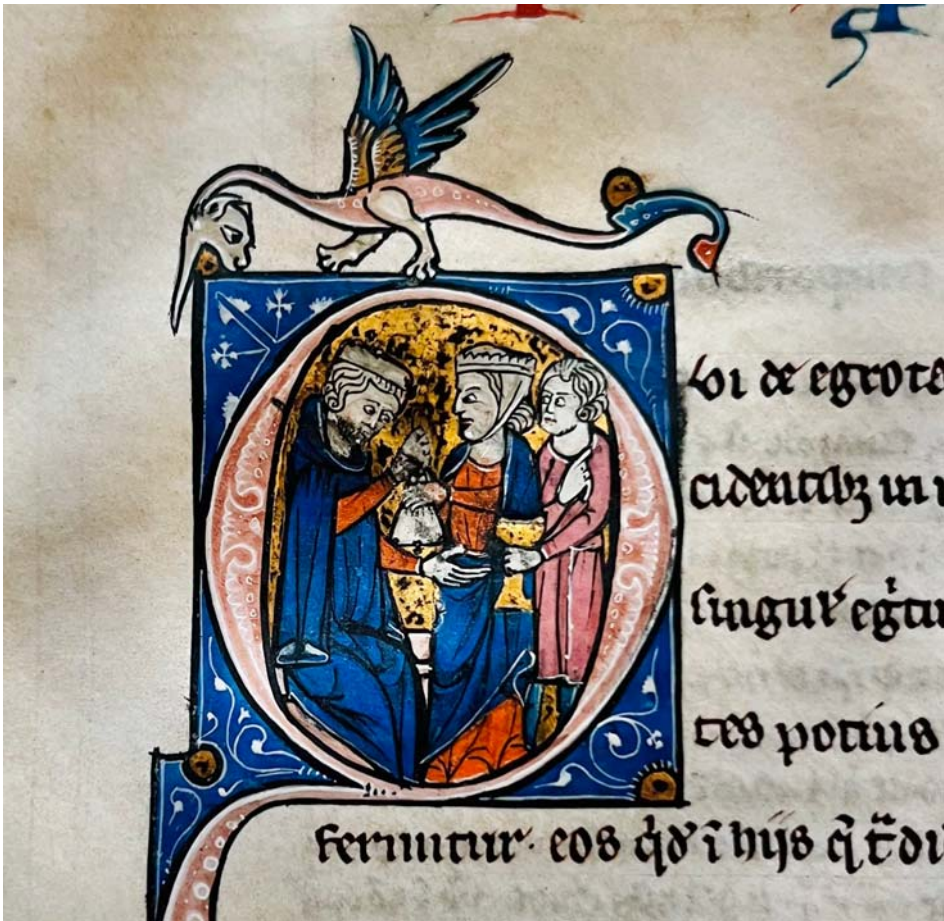 Qui de egrota
cidentibꝫ in
singul' eg̃tu
tes potius
feruntur· eos q̃d' ĩ hijs q̃ t̃di